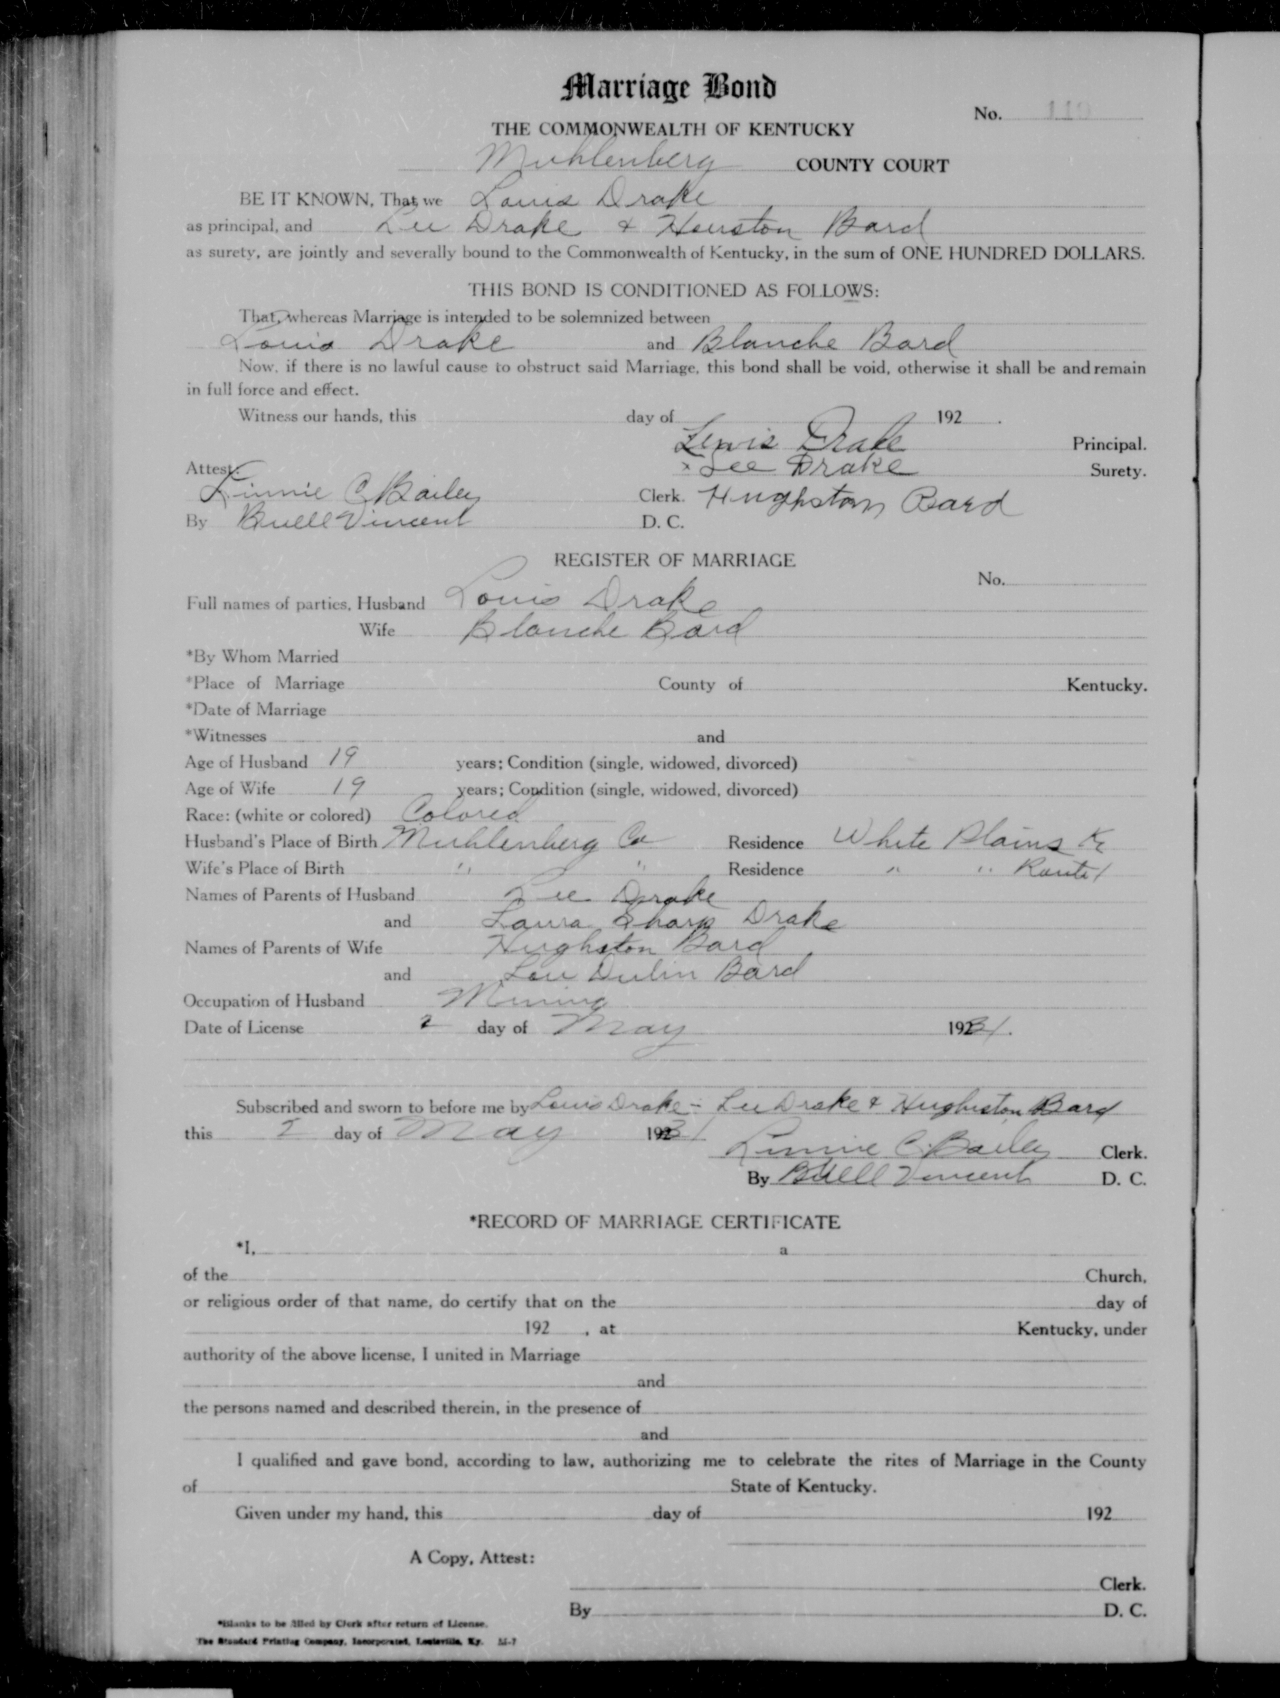 Marriage Bond
No. 110
THE COMMONWEALTH OF KENTUCKY
Muhlenberg COUNTY COURT
BE IT KNOWN, That we Louis Drake
as principal, and Lee Drake & Houston Bard
as surety, are jointly and severally bound to the Commonwealth of Kentucky, in the sum of ONE HUNDRED DOLLARS.
THIS BOND IS CONDITIONED AS FOLLOWS:
That, whereas Marriage is intended to be solemnized between
Louis Drake and Blanche Bard
Now, if there is no lawful cause to obstruct said Marriage, this bond shall be void, otherwise it shall be and remain
in full force and effect.
Witness our hands, this day of 192 .
Lewis Drake Principal.
x Lee Drake Surety.
Attest:
Linnie C Bailey Clerk. Hughston Bard
By Buell Vincent D. C.
REGISTER OF MARRIAGE
No.
Full names of parties, Husband Louis Drake
Wife Blanche Bard
*By Whom Married
*Place of Marriage County of Kentucky.
*Date of Marriage
*Witnesses and
Age of Husband 19 years; Condition (single, widowed, divorced)
Age of Wife 19 years; Condition (single, widowed, divorced)
Race: (white or colored) Colored
Husband's Place of Birth Muhlenberg Co Residence White Plains Ky
Wife's Place of Birth " " Residence " " Route 1
Names of Parents of Husband Lee Drake
and Laura Sharp Drake
Names of Parents of Wife Hughston Bard
and Lou Dulin Bard
Occupation of Husband Mining
Date of License 2 day of May 1931.
Subscribed and sworn to before me by Louis Drake - Lee Drake & Hughston Bard
this 2 day of May 1931
Linnie C. Bailey Clerk.
By Buell Vincent D. C.
*RECORD OF MARRIAGE CERTIFICATE
*I, a
of the Church,
or religious order of that name, do certify that on the day of
192 , at Kentucky, under
authority of the above license, I united in Marriage
and
the persons named and described therein, in the presence of
and
I qualified and gave bond, according to law, authorizing me to celebrate the rites of Marriage in the County
of State of Kentucky.
Given under my hand, this day of 192
A Copy, Attest:
Clerk.
By D. C.
*Blanks to be filled by Clerk after return of License.
The Standard Printing Company, Incorporated, Louisville, Ky.